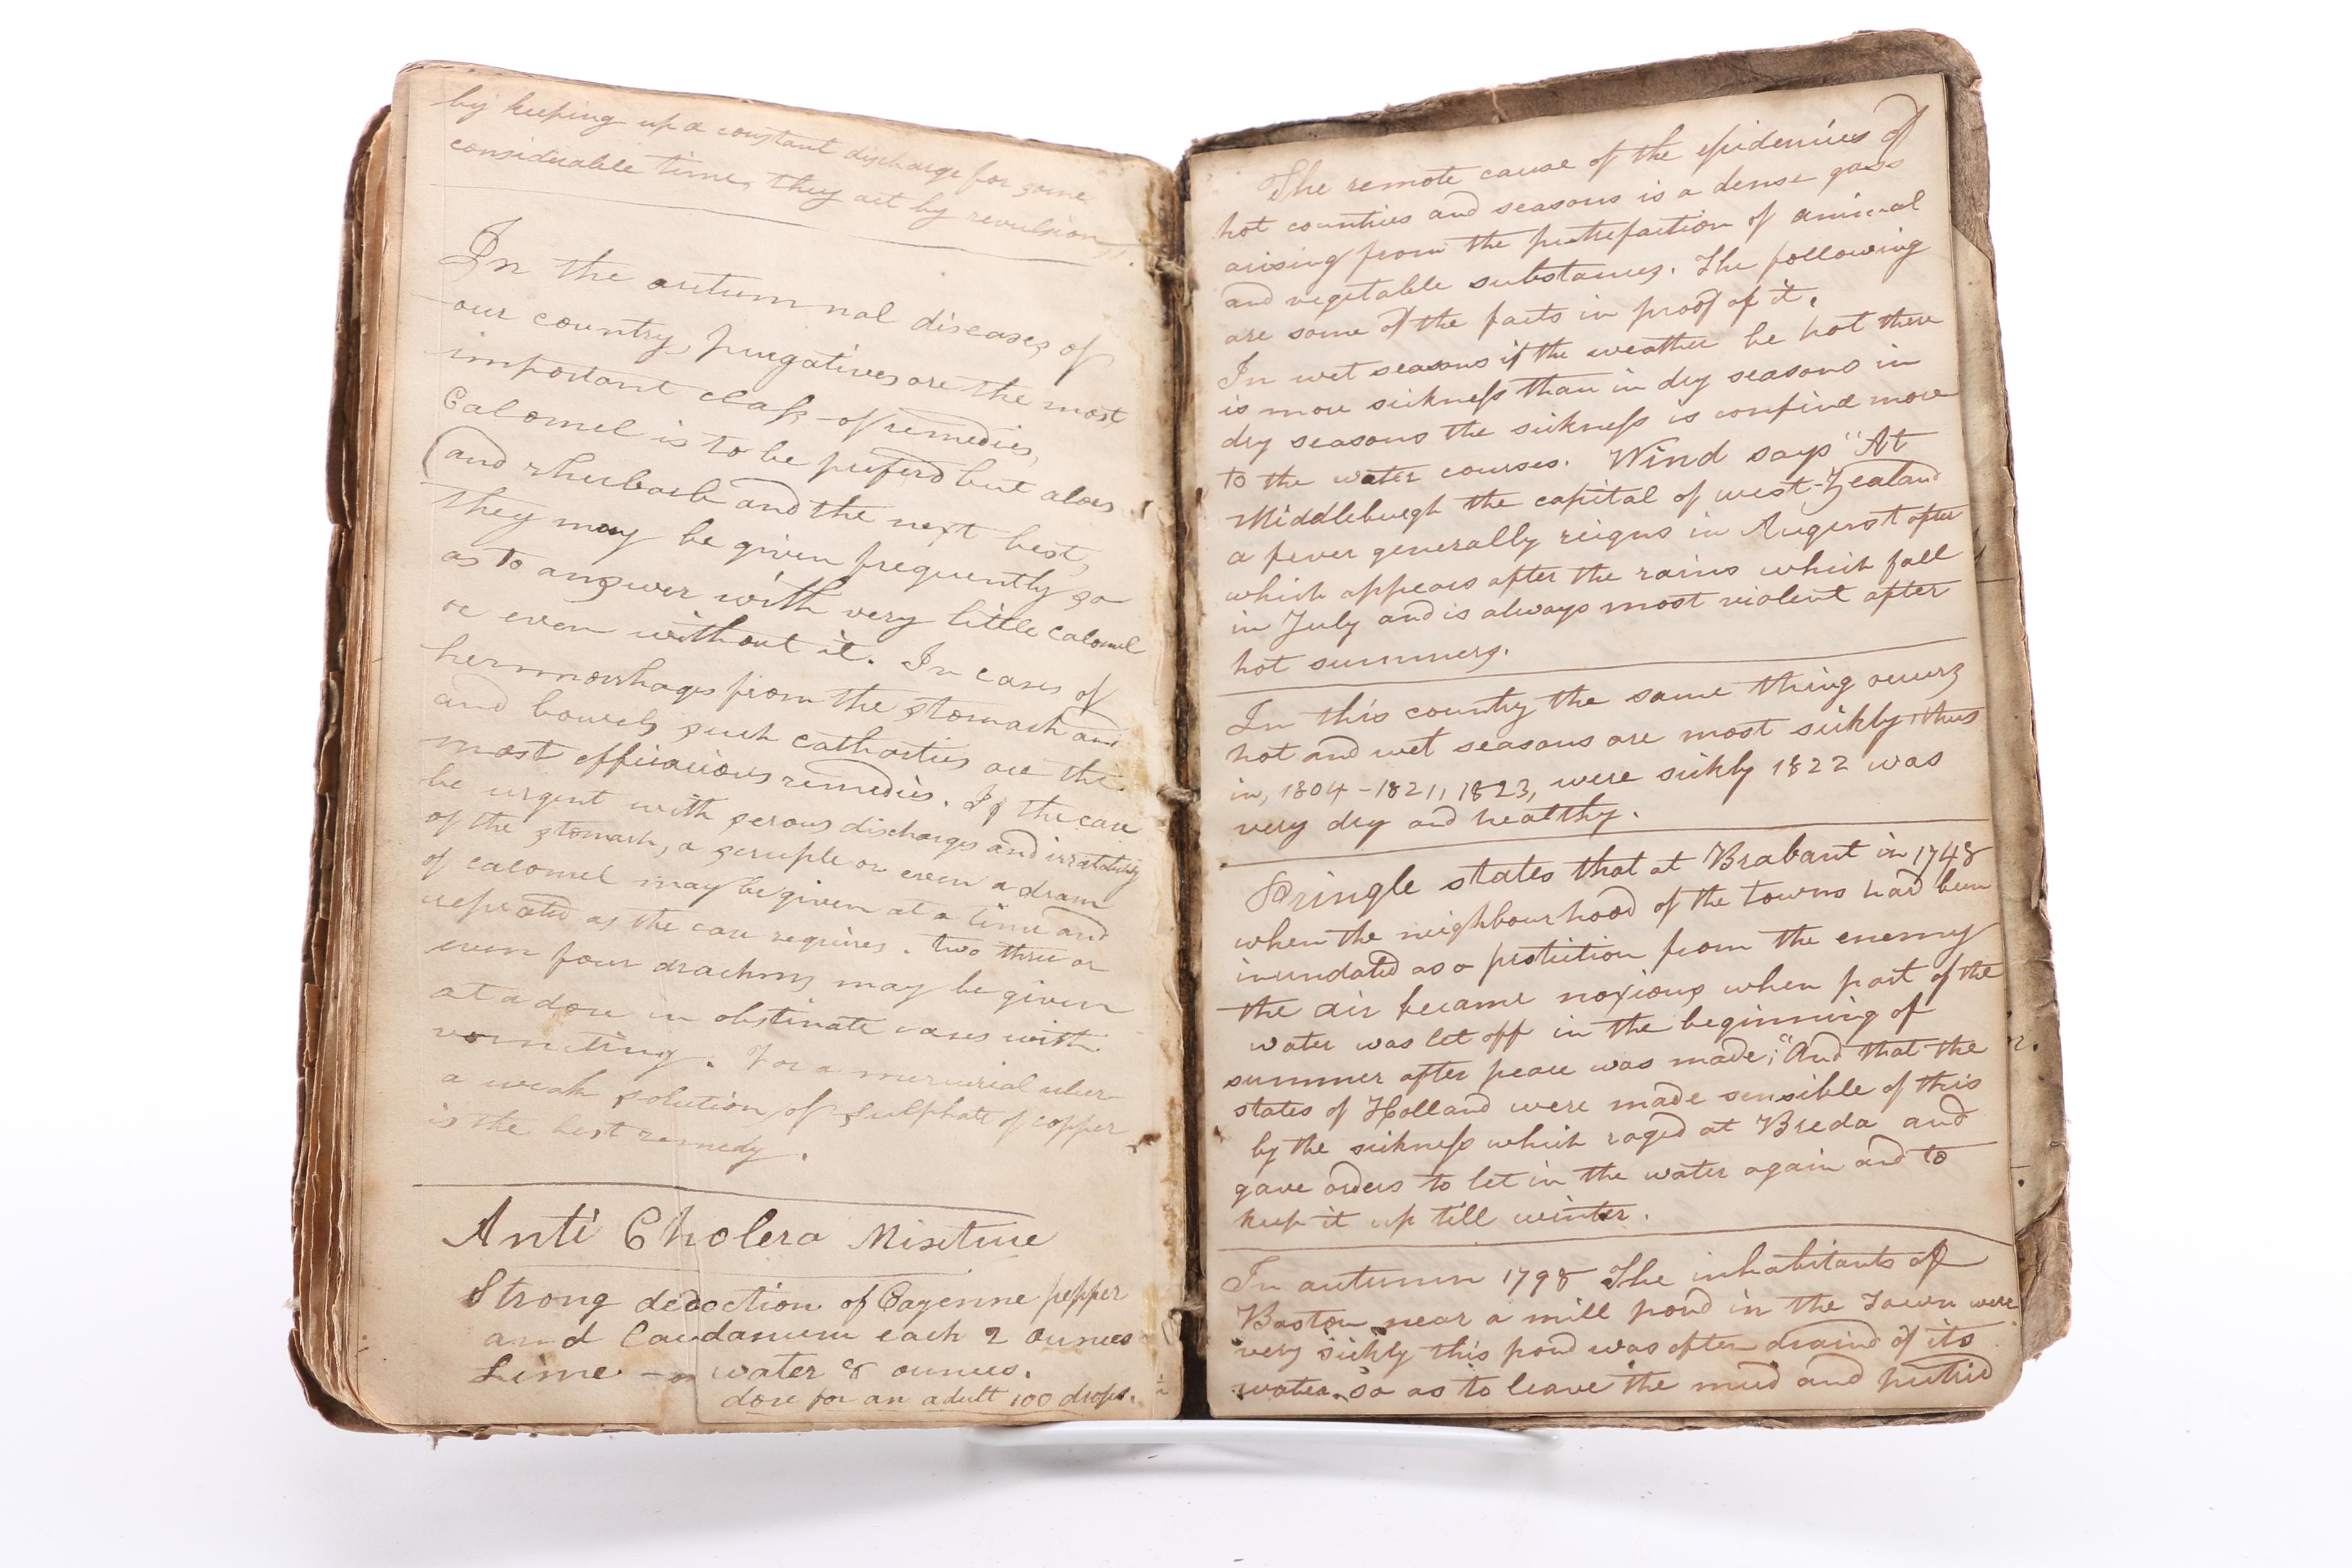 by keeping up a constant discharge for some
considerable time, they act by revulsion.
In the autumnal diseases of
our country, purgatives are the most
important class of remedies,
Calomel is to be preferd but aloes
(and rhubarb and the next best,
they may be given frequently so
as to answer with very little calomel
or even without it. In cases of
hermorrhages from the stomach and
and bowels such cathartics are the
most efficacious remedies. If the case
be urgent with serous discharges and irratability
of the stomach, a scruple or even a dram
of calomel may be given at a time and
repeated as the case requires. two three or
even four drachms may be given
at a dose in obstinate cases with
vomiting. For a mercurial ulcer
a weak solution of sulphate of copper
is the best remedy.
Anti Cholera Mixture
Strong decoction of Cayenne pepper
and Laudanum each 2 ounces
Lime - water 8 ounces.
dose for an adult 100 drops.
The remote cause of the epidemics of
hot countries and seasons is a dense gass
arising from the putrefaction of animal
and vegetable substances. The following
are some of the facts in proof of it.
In wet seasons if the weather be hot there
is more sickness than in dry seasons in
dry seasons the sickness is confind more
to the water courses. Wind says "At
Middleburgh the capital of west-Zealand
a fever generally reigns in Augurst after
which appears after the rains which fall
in July and is always most violent after
hot summers.
In this country the same thing occurs
hot and wet seasons are most sickly, thus
in, 1804 - 1821, 1823, were sickly 1822 was
very dry and healthy.
Pringle states that at Brabant in 1748
when the neighbourhood of the towns had been
inundated as a protection from the enemy
the air became noxious when part of the
water was let off in the beginning of
summer after peace was made; "And that the
states of Holland were made sensible of this
by the sickness which raged at Breda and
gave orders to let in the water again and to
keep it up till winter.
In autumn 1798 The inhabitants of
Boston near a mill pond in the Town were
very sickly this pond was often draind of its
water so as to leave the mud and putrid